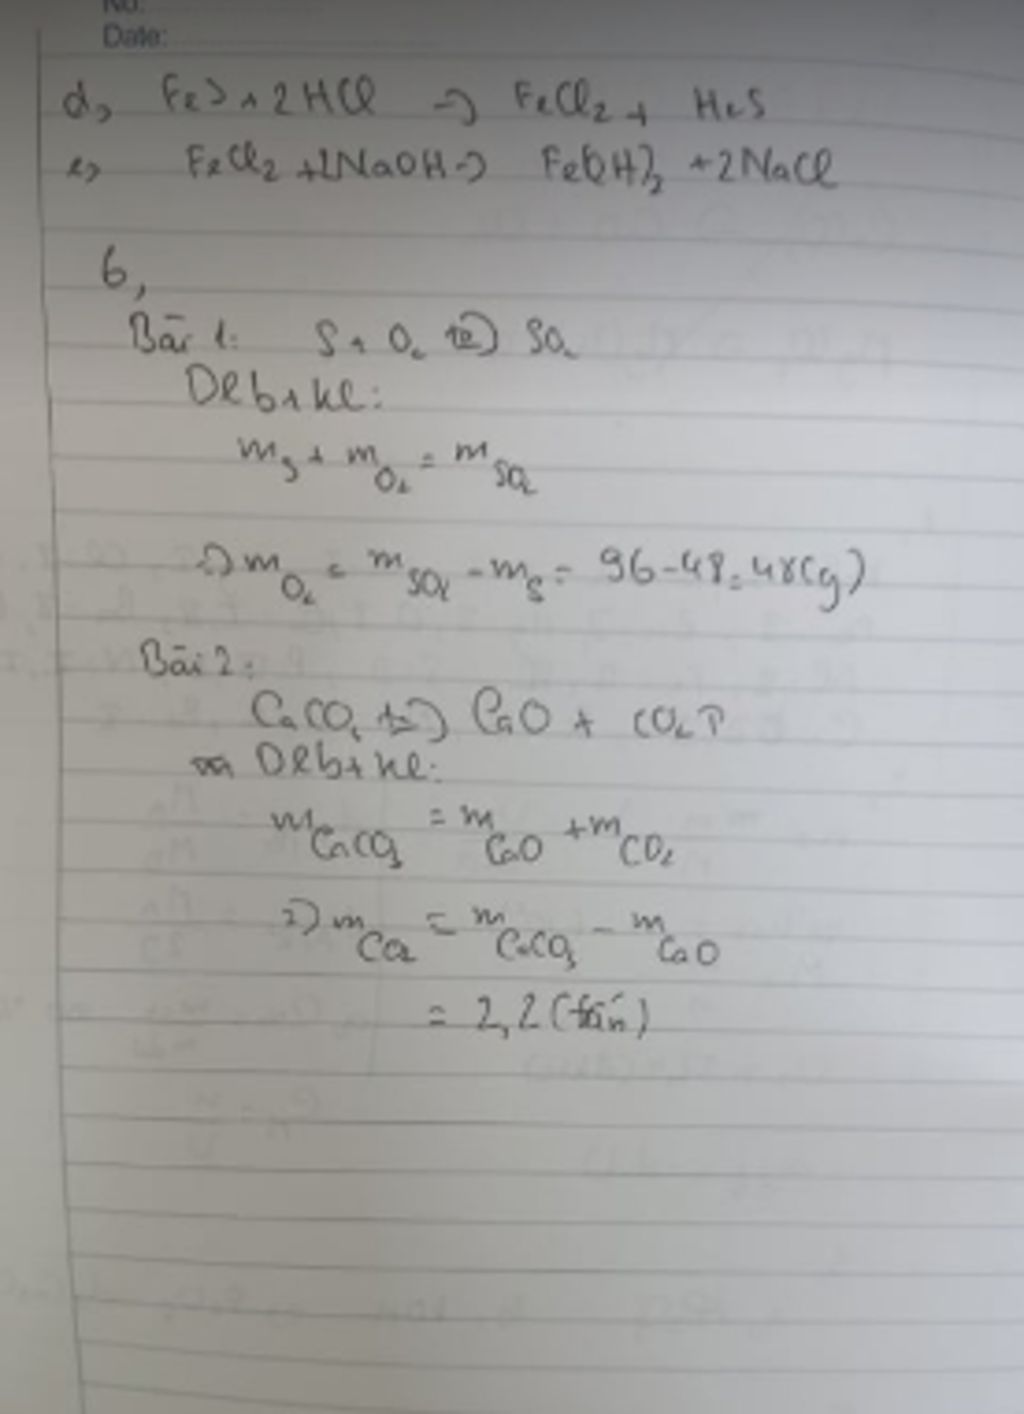 No:
Date:
d, FeS + 2HCl → FeCl2 + H2S
e, FeCl2 + 2NaOH → Fe(OH)2 + 2NaCl
6,
Bài 1: S + O2 to→ SO2
Dlbtkl:
mS + mO2 = mSO2
=> mO2 = mSO2 - mS = 96 - 48 = 48(g)
Bài 2:
CaCO3 to→ CaO + CO2↑
Dlbtkl:
mCaCO3 = mCaO + mCO2
=> mCO2 = mCaCO3 - mCaO
= 2,2 (tấn)